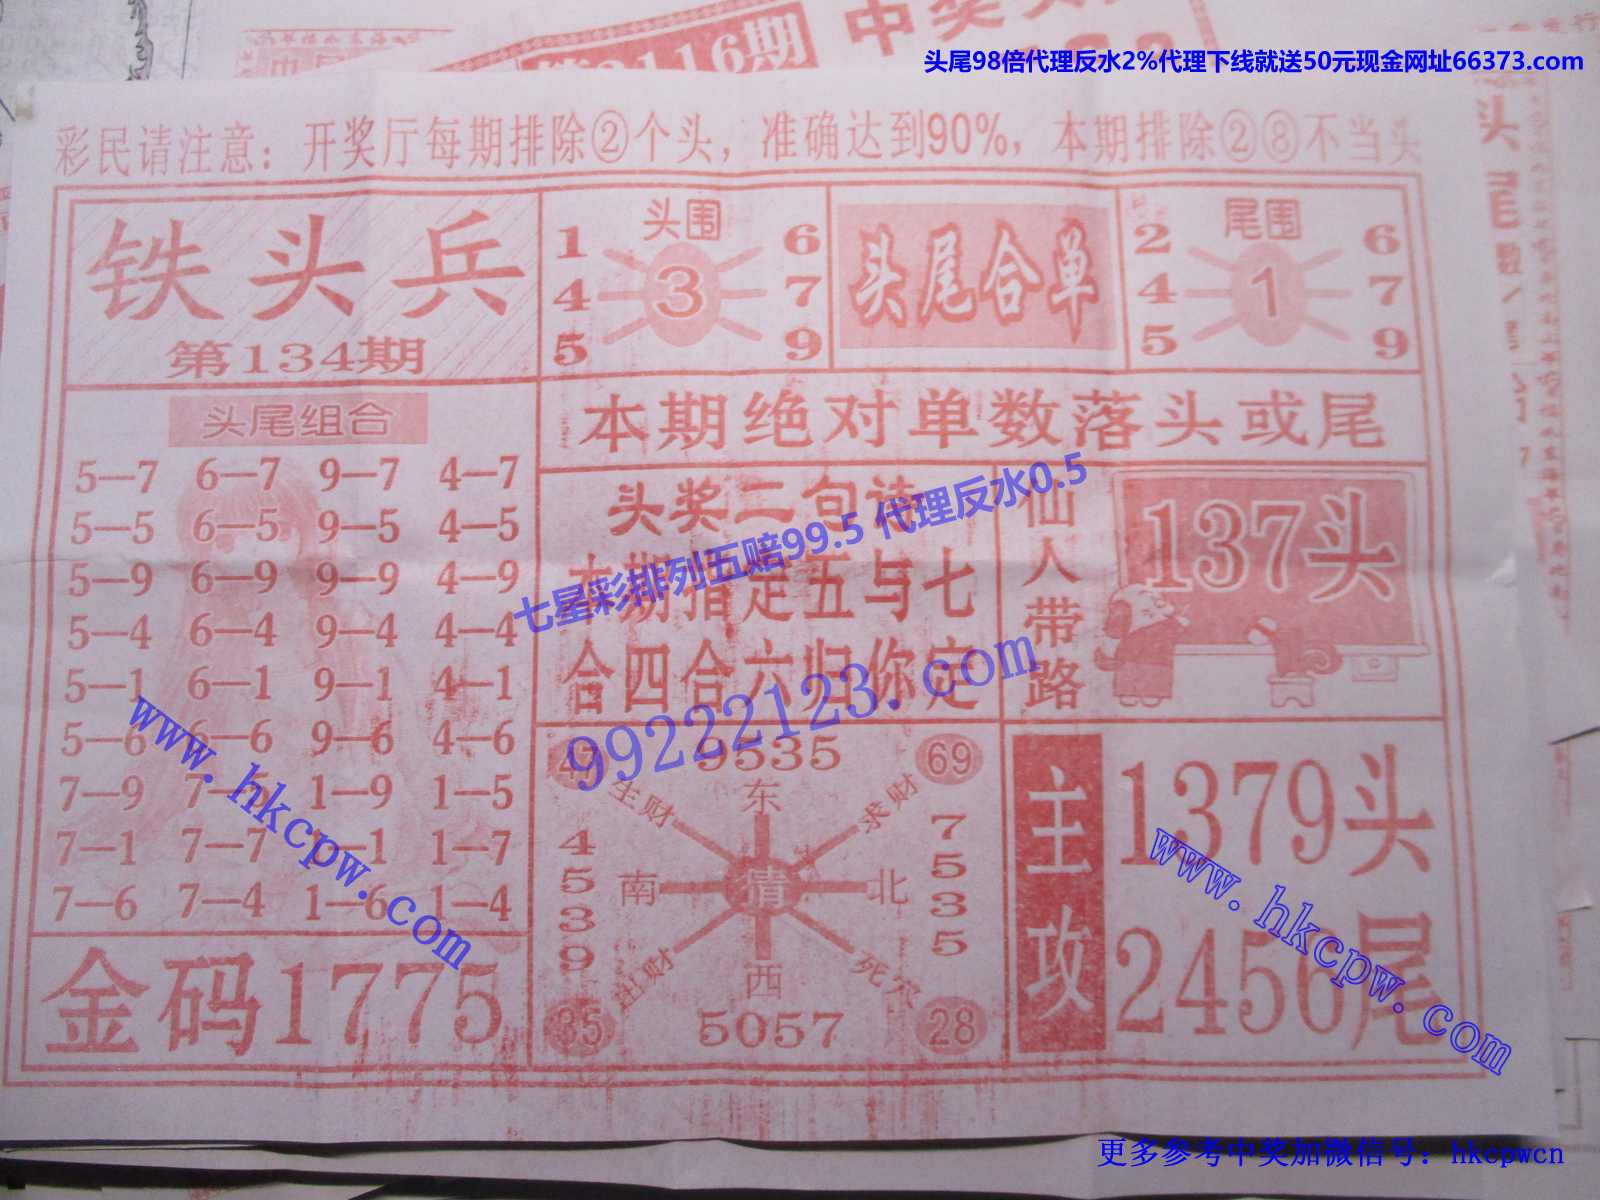 中奖
116期
头尾98倍代理反水2%代理下线就送50元现金网址66373.com
彩民请注意：开奖厅每期排除②个头，准确达到90%，本期排除②⑧不当头
铁头兵
第134期
头围
1 6
4 3 7
5 9
头尾合单
尾围
2 6
4 1 7
5 9
头尾组合
5—7 6—7 9—7 4—7
5—5 6—5 9—5 4—5
5—9 6—9 9—9 4—9
5—4 6—4 9—4 4—4
5—1 6—1 9—1 4—1
5—6 6—6 9—6 4—6
7—9 7—5 1—9 1—5
7—1 7—7 1—1 1—7
7—6 7—4 1—6 1—4
金码1775
本期绝对单数落头或尾
头奖二句诗
本期指定五与七
合四合六归你定
仙人带路
137头
47 9535 69
生财 东 求财
4539
南 猜 北
7535
出财 西 死穴
35 5057 28
主攻
1379头
2456尾
七星彩排列五赔99.5 代理反水0.5
99222123.com
www.hkcpw.com
www.hkcpw.com
头
尾
更多参考中奖加微信号：hkcpwcn